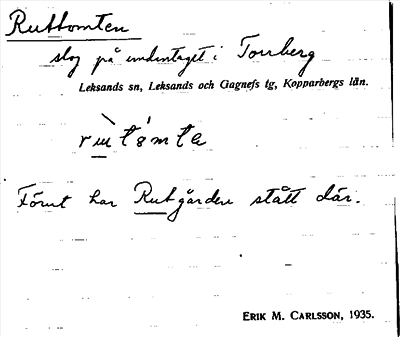 Ruttomten
slog på undantaget i Tonberg
Leksands sn, Leksands och Gagnefs tg, Kopparbergs län.
Förut har Rutgården stått där.
ERIK M. CARLSSON, 1935.